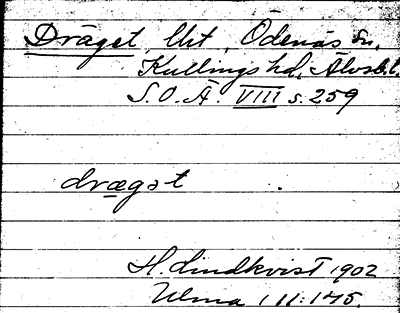 Dräget, Uht, Ödenäs sn,
Kullings hd, Älvsb. l.
S.O.Ä. VIII s. 259
drægət
H. Lindkvist 1902
Ulma 111:145.